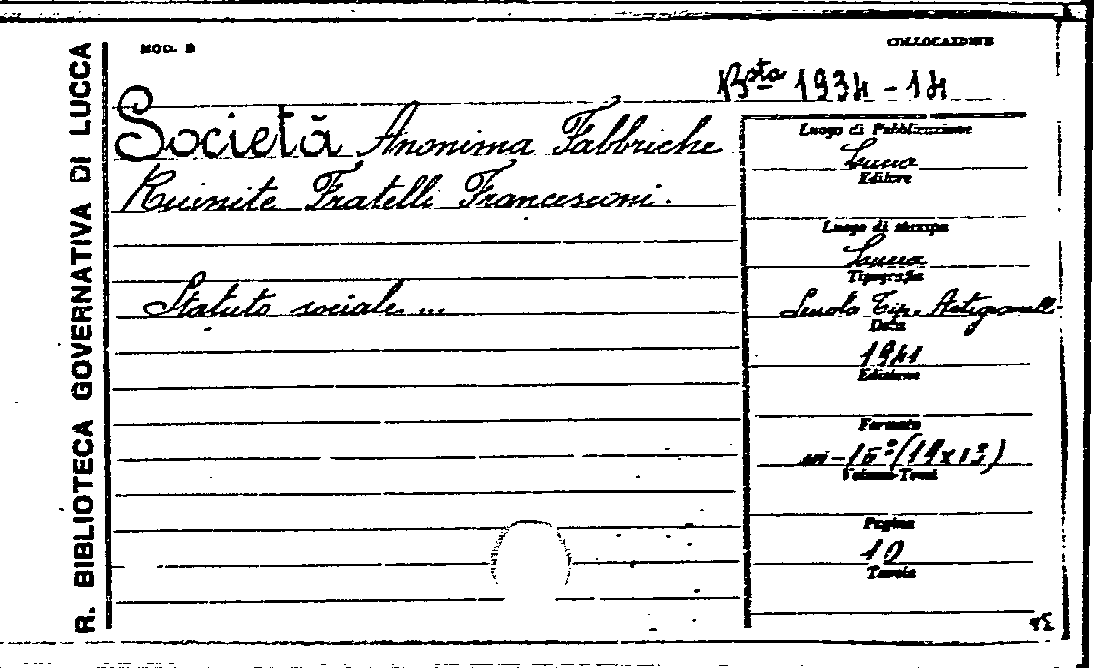 R. BIBLIOTECA GOVERNATIVA DI LUCCA
MOD. B
COLLOCAZIONE
Bsta 1934-14
Società Anonima Fabbriche
Riunite Fratelli Francesconi.
Statuto sociale...
Luogo di Pubblicazione
Lucca
Editore
Luogo di stampa
Lucca
Tipografia
Scuola Tip. Artigianelli
Data
1941
Edizione
Formato
in-16°(19x13)
Volume-Tomi
Pagine
10
Tavole